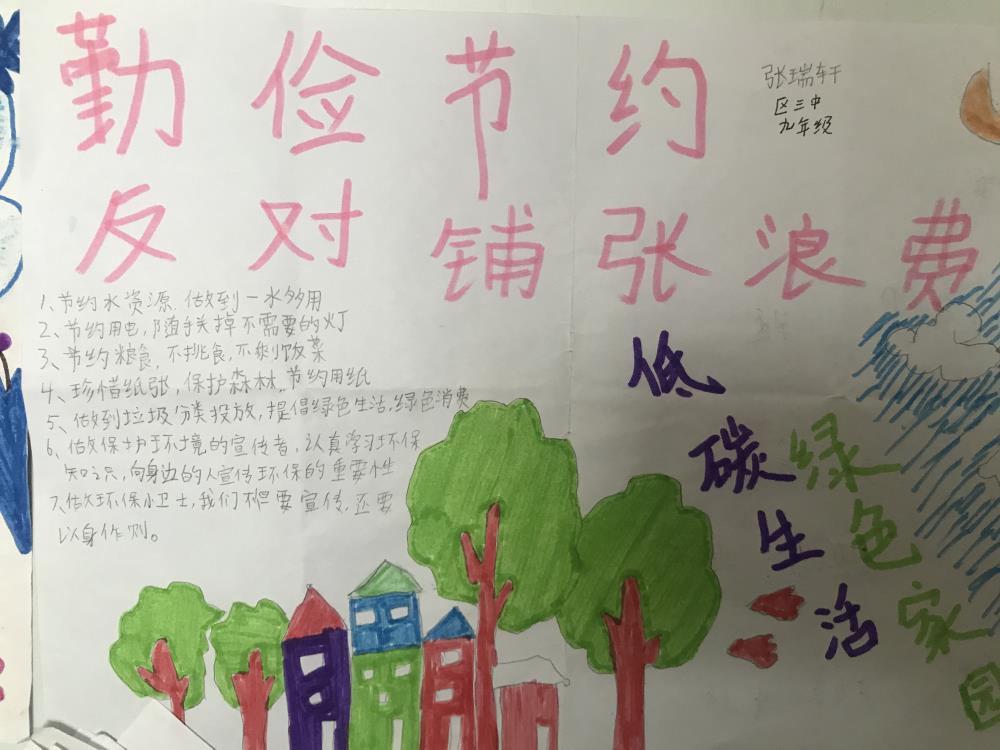 勤俭节约
张瑞轩
区三中
九年级
反对铺张浪费
1、节约水资源,做到一水多用
2、节约用电,随手关掉不需要的灯
3、节约粮食,不挑食,不剩饭菜
4、珍惜纸张,保护森林,节约用纸
5、做到垃圾分类投放,提倡绿色生活,绿色消费
6、做保护环境的宣传者,认真学习环保
知识,向身边的人宣传环保的重要性
7、做环保小卫士,我们不但要宣传,还要
以身作则。
低碳生活
绿色家园